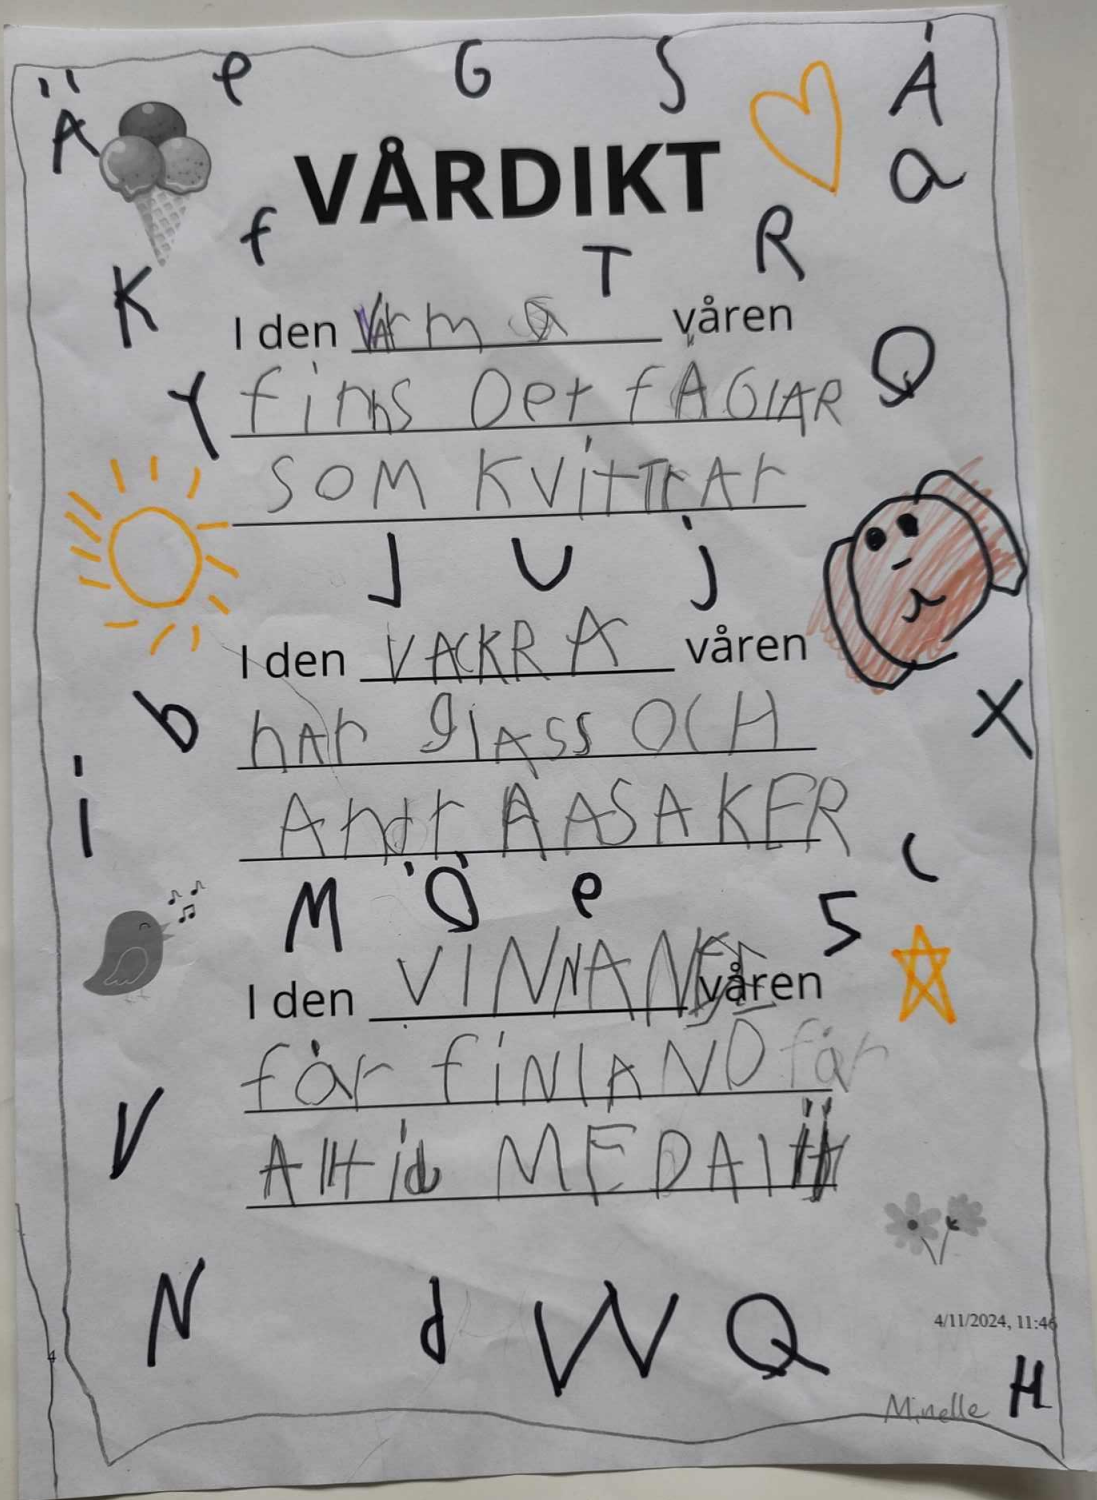 Ä e G S Å
VÅRDIKT
a
f T R
K
I den VArma våren
Q
Y finns Det fÅGlAR
SOM KVitTrAr
J U j
I den VACKRA våren
b hAr glASS OCH X
i
AndrA ASAKER
M Ö e S c
I den VINNANDE våren
får fiNlAND får
V Alltid MEDAlj
N d W Q
4/11/2024, 11:46
4
Minelle H